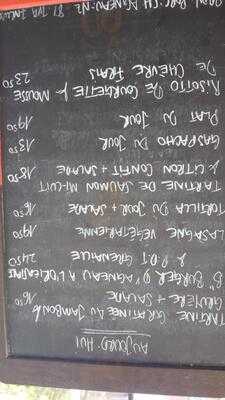 AUJOURD'HUI
TARTINE GRATINÉE AU JAMBON &
GRUYERE + SALADE 1650
B. BURGER D'AGNEAU A L'ORIENTALE
& P.D.T GRENAILLE 2450
LASAGNE VEGETARIENNE 1950
TORTILLA DU JOUR + SALADE 1650
TARTINE DE SAUMON MI-CUIT
& CITRON CONFIT + SALADE 1850
GASPACHO DU JOUR 1350
PLAT DU JOUR 1950
RISOTTO DE COURGETTE & MOUSSE
DE CHEVRE FRAIS 2350
AGNEAU: NZ 8% TVA